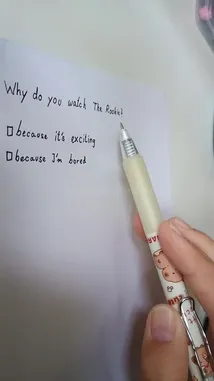 Why do you watch The Rookie?
because it's exciting
because I'm bored